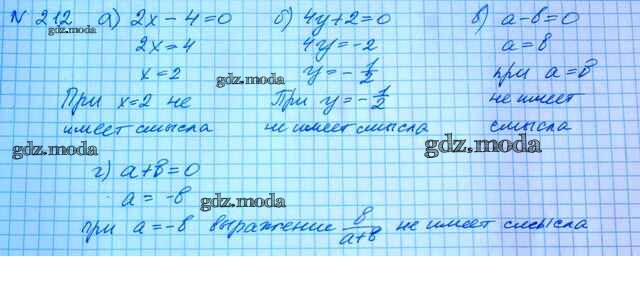 № 212 а) 2x - 4 = 0 б) 4y + 2 = 0 в) a - в = 0
2x = 4 4y = -2 a = в
x = 2 gdz.moda y = -1/2 при a = в
При x = 2 не При y = -1/2 не имеет
имеет смысла не имеет смысла смысла
gdz.moda gdz.moda
г) a + в = 0
a = -в gdz.moda
при a = -в выражение в/(a+в) не имеет смысла